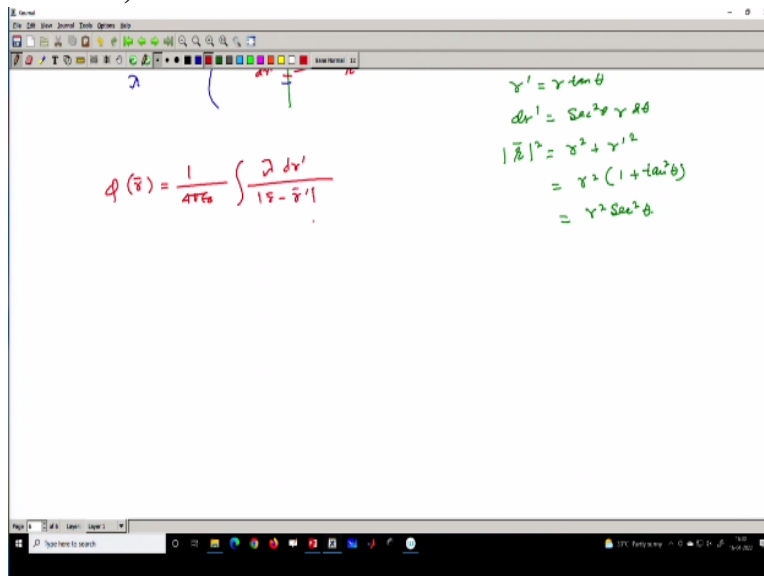 Journal
File Edit View Journal Tools Options Help
Sans Normal 12
λ
dr'
r' = r tan θ
dr' = Sec²θ r dθ
|r̄|² = r² + r'²
= r² (1 + tan² θ)
= r² Sec² θ.
φ (r̄) = 1/4πε₀ ∫ λ dr' / |r̄ - r̄'|
Page 6 of 6 Layer: Layer 1
Type here to search
33°C Partly sunny